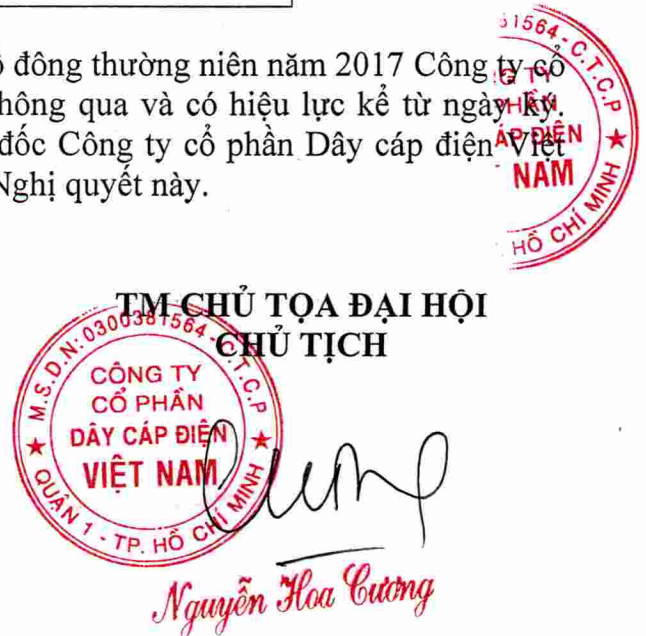 ổ đông thường niên năm 2017 Công ty cổ
hông qua và có hiệu lực kể từ ngày ký.
đốc Công ty cổ phần Dây cáp điện Việt
Nghị quyết này.
51564-C.T.C.P
G TY
PHẦN
ÁP ĐIỆN
NAM
HỒ CHÍ MINH
TM CHỦ TỌA ĐẠI HỘI
CHỦ TỊCH
M.S.D.N: 0300381564-C.T.C.P
CÔNG TY
CỔ PHẦN
DÂY CÁP ĐIỆN
VIỆT NAM
QUẬN 1 - TP. HỒ CHÍ MINH
Nguyễn Hoa Cương